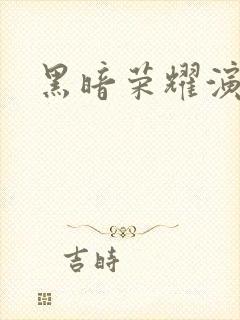 黑暗荣耀演
吉時